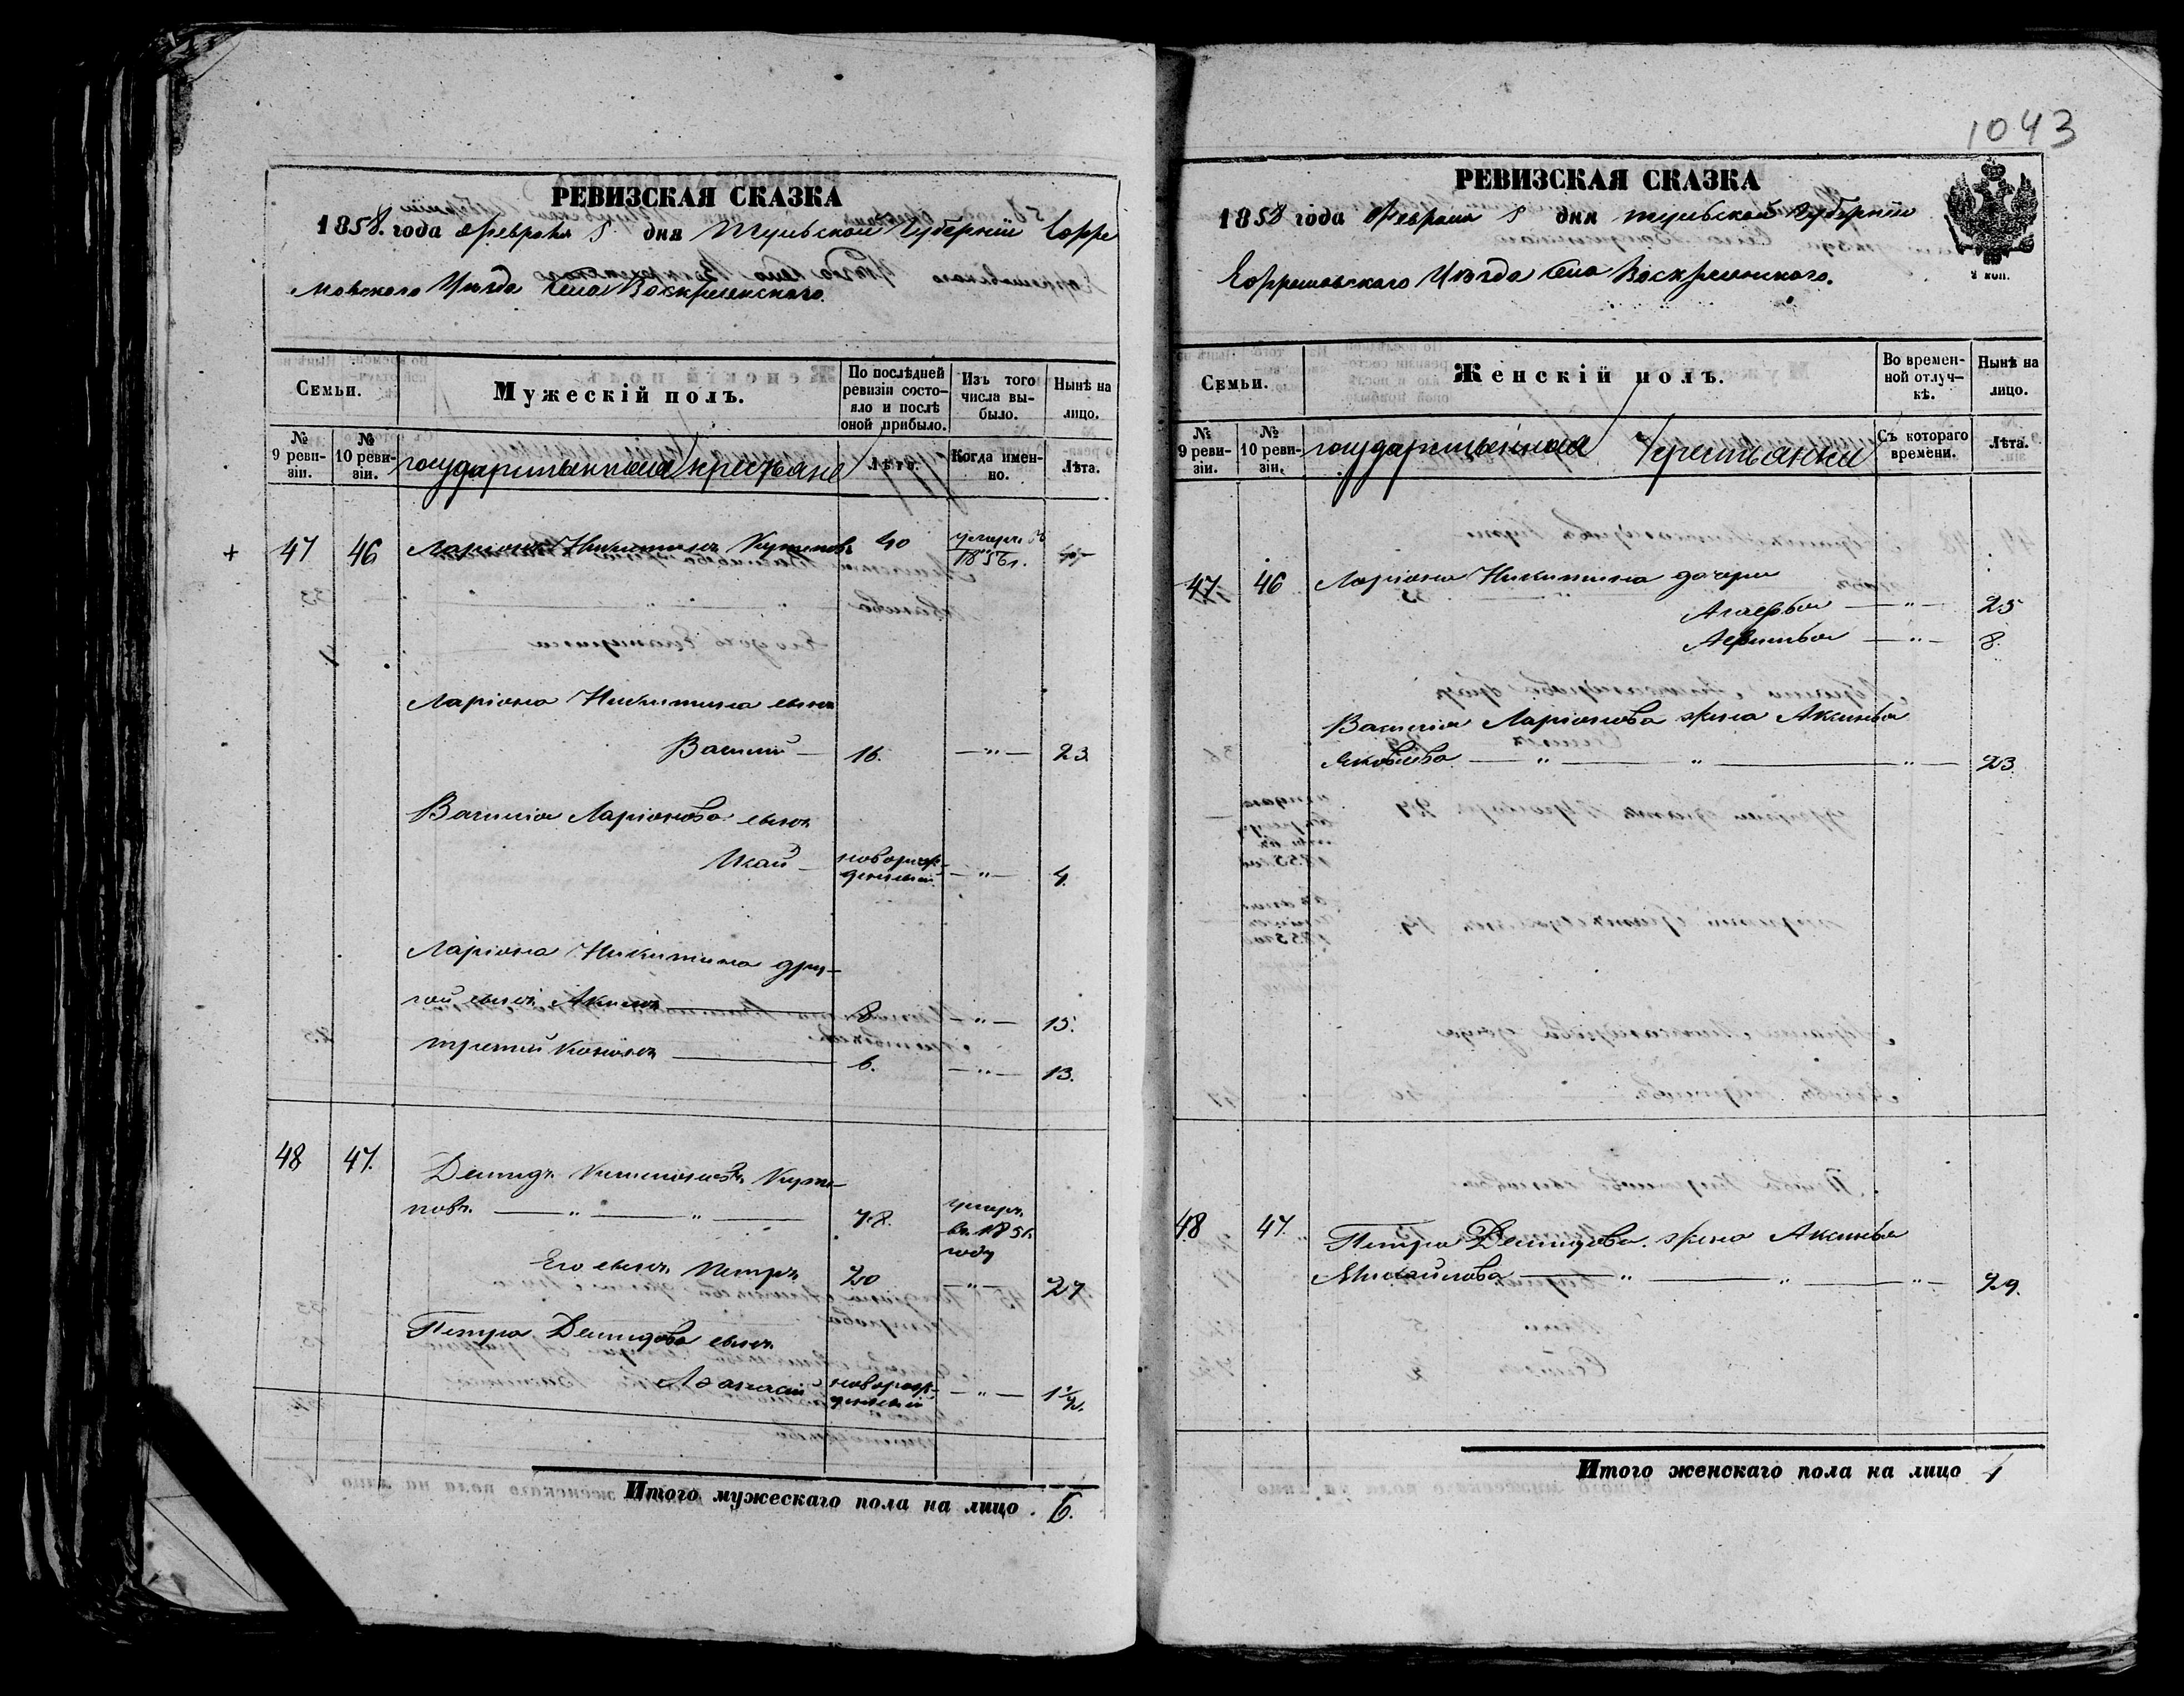 1043
РЕВИЗСКАЯ СКАЗКА
1858. года Февраля 8 дня Тульской Губерніи Ефре
мовскаго Уѣзда Села Воскресенскаго.
Семьи.
Мужескій полъ.
По послѣдней ревизіи состояло и послѣ оной прибыло.
Изъ того числа выбыло.
Нынѣ на лицо.
№ 9 ревизіи.
№ 10 ревизіи.
государственные крестьяне
Лѣта.
Когда именно.
Лѣта.
47 46 Ларіонъ Никитинъ 40 умеръ въ 1856г.
Ларіона Никитина сынъ
Василій — 16. — " — 23.
Василія Ларіонова сынъ
новорожденный — " — 4.
Ларіона Никитина дру-
гой сынъ Акимъ 8 — " — 15.
третій Кононъ 6. — " — 13.
48 47.
Демидъ
78. умеръ въ 1856 году
Его сынъ Петръ 20 — " — 27
Петра Демидова сынъ
Афанасій новорожденный — " — 1 1/2.
Итого мужескаго пола на лицо . 6.
РЕВИЗСКАЯ СКАЗКА
1858 года Февраля 8 дня Тульской Губерніи
Ефремовскаго Уѣзда Села Воскресенскаго.
2 коп.
Семьи.
Женскій полъ.
Во временной отлучкѣ.
Нынѣ на лицо.
№ 9 ревизіи.
№ 10 ревизіи.
государственныя крестьянки
Съ котораго времени.
Лѣта.
47. 46 Ларіона Никитина дочери
Агафья — " — 25
8.
Василія Ларіонова жена Аксинья
Яковлева — " — " — " — 23.
48 47. Петра Демидова жена Аксинья
Михайлова — " — " — " — 29.
Итого женскаго пола на лицо 4